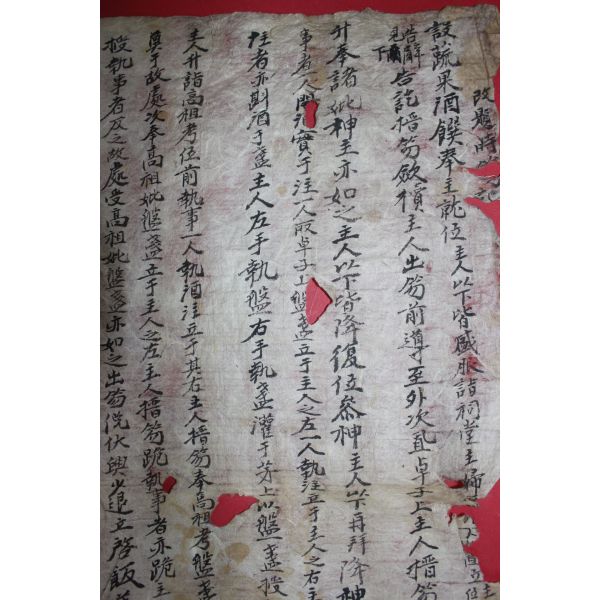 改題時
設蔬果酒饌奉主就位主人以下皆盛服詣祠堂主婦
告辭見下
告訖搢笏斂櫝主人出笏前導至外次置卓子上主人搢笏
升奉諸妣神主亦如之主人以下皆降復位參神主人以下再拜降神
事者一人開酒實于注一人取卓子上盤盞立于主人之左一人執注立于主人之右主
注者亦斟酒于盞主人左手執盤右手執盞灌于茅上以盤盞授
主人升詣高祖考位前執事一人執酒注立于其右主人搢笏奉高祖考盤盞
奠于故處次奉高祖妣盤盞立于主人之左主人搢笏跪執事者亦跪主
授執事者反之故處受高祖妣盤盞亦如之出笏俛伏興少退立啓飯